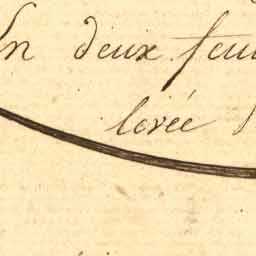 En deux feui
levée